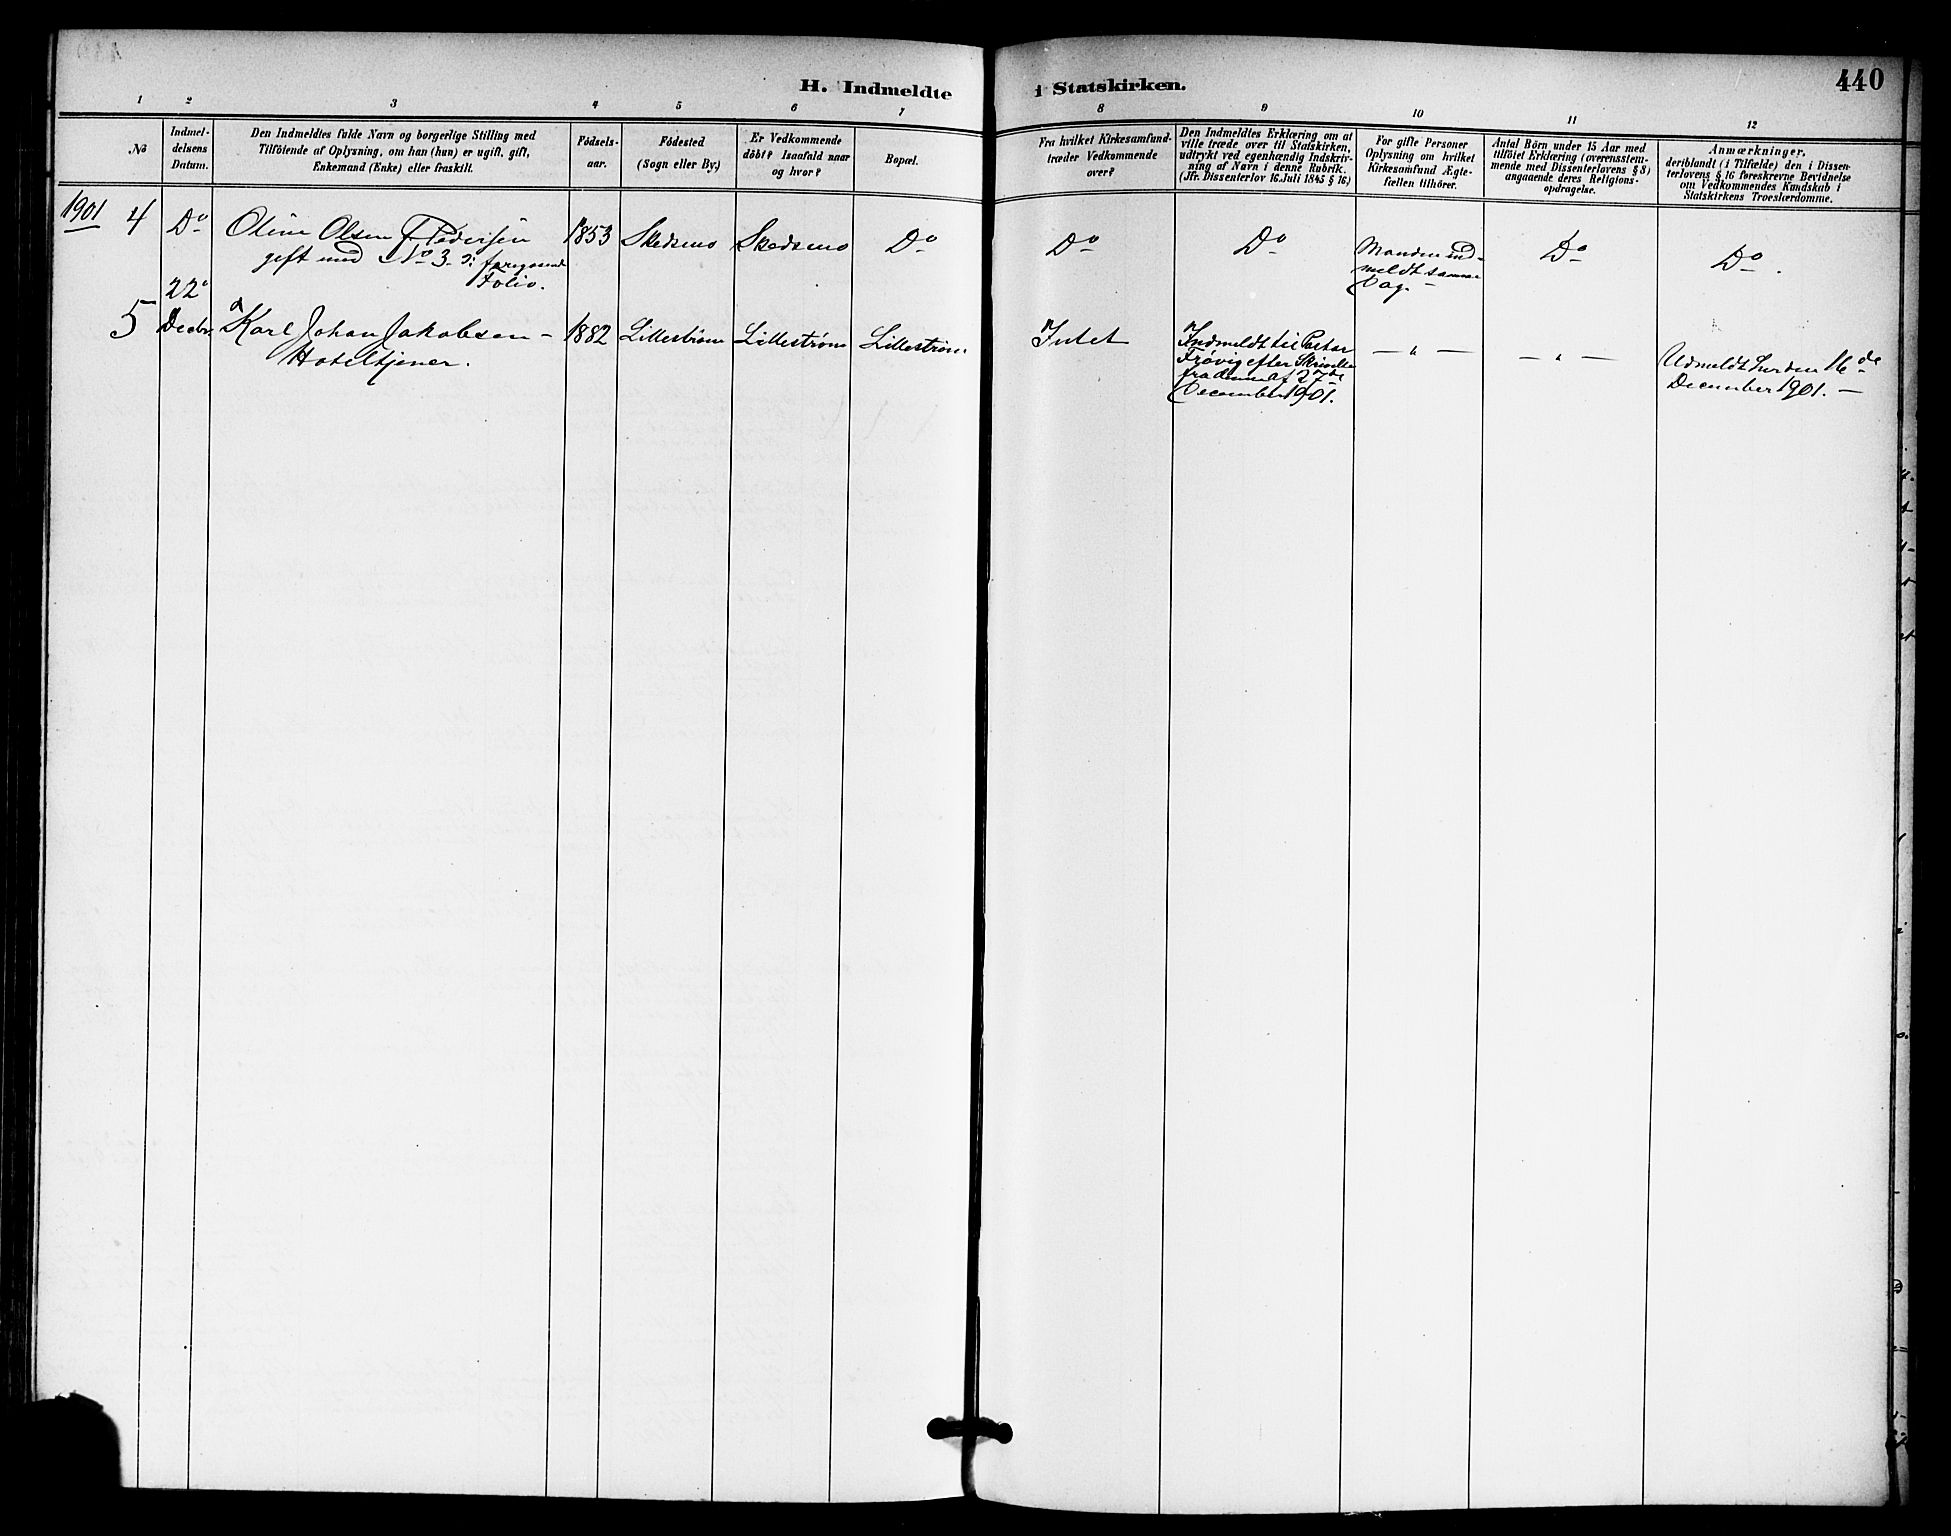 H. Indmeldte i Statskirken.
440
1 2 3 4 5 6 7 8 9 10 11 12
No
Indmel-
delsens
Datum.
Den Indmeldtes fulde Navn og borgerlige Stilling med
Tilföiende af Oplysning, om han (hun) er ugift, gift,
Enkemand (Enke) eller fraskilt.
Födsels-
aar.
Födested
(Sogn eller By.)
Er Vedkommende
döbt? Isaafald naar
og hvor?
Bopæl.
Fra hvilket Kirkesamfund
træder Vedkommende
over?
Den Indmeldtes Erklæring om at
ville træde over til Statskirken,
udtrykt ved egenhændig Indskriv-
ning af Navn i denne Rubrik.
(Jfr. Dissenterlov 16. Juli 1845 § 16)
For gifte Personer
Oplysning om hvilket
Kirkesamfund Ægte-
fællen tilhörer.
Antal Börn under 15 Aar med
tilföiet Erklæring (overensstem-
mende med Dissenterlovens § 8)
angaaende deres Religions-
opdragelse.
Anmærkninger,
deriblandt (i Tilfælde) den i Dissen-
terlovens § 16 foreskrevne Bevidnelse
om Vedkommendes Kundskab i
Statskirkens Troeslærdomme.
1901
4
Do
Oline Olsen F. Pedersen
gift med No 3 i foregaaende
Folio.
1853
Skedsmo
Skedsmo
Do
Do
Do
Manden ind-
meldt samme
Dag. -
Do
Do.
5
22de
Decbr.
Karl Johan Jakobsen -
Hoteltjener.
1882
Lillestrøm
Lillestrøm
Lillestrøm
Intet
Indmeldt til Pastor
Frøvig efter Skrivelse
fra denne af 27de
December 1901.
— " —
— " —
Udmeldt hver den 16de
December 1901. —